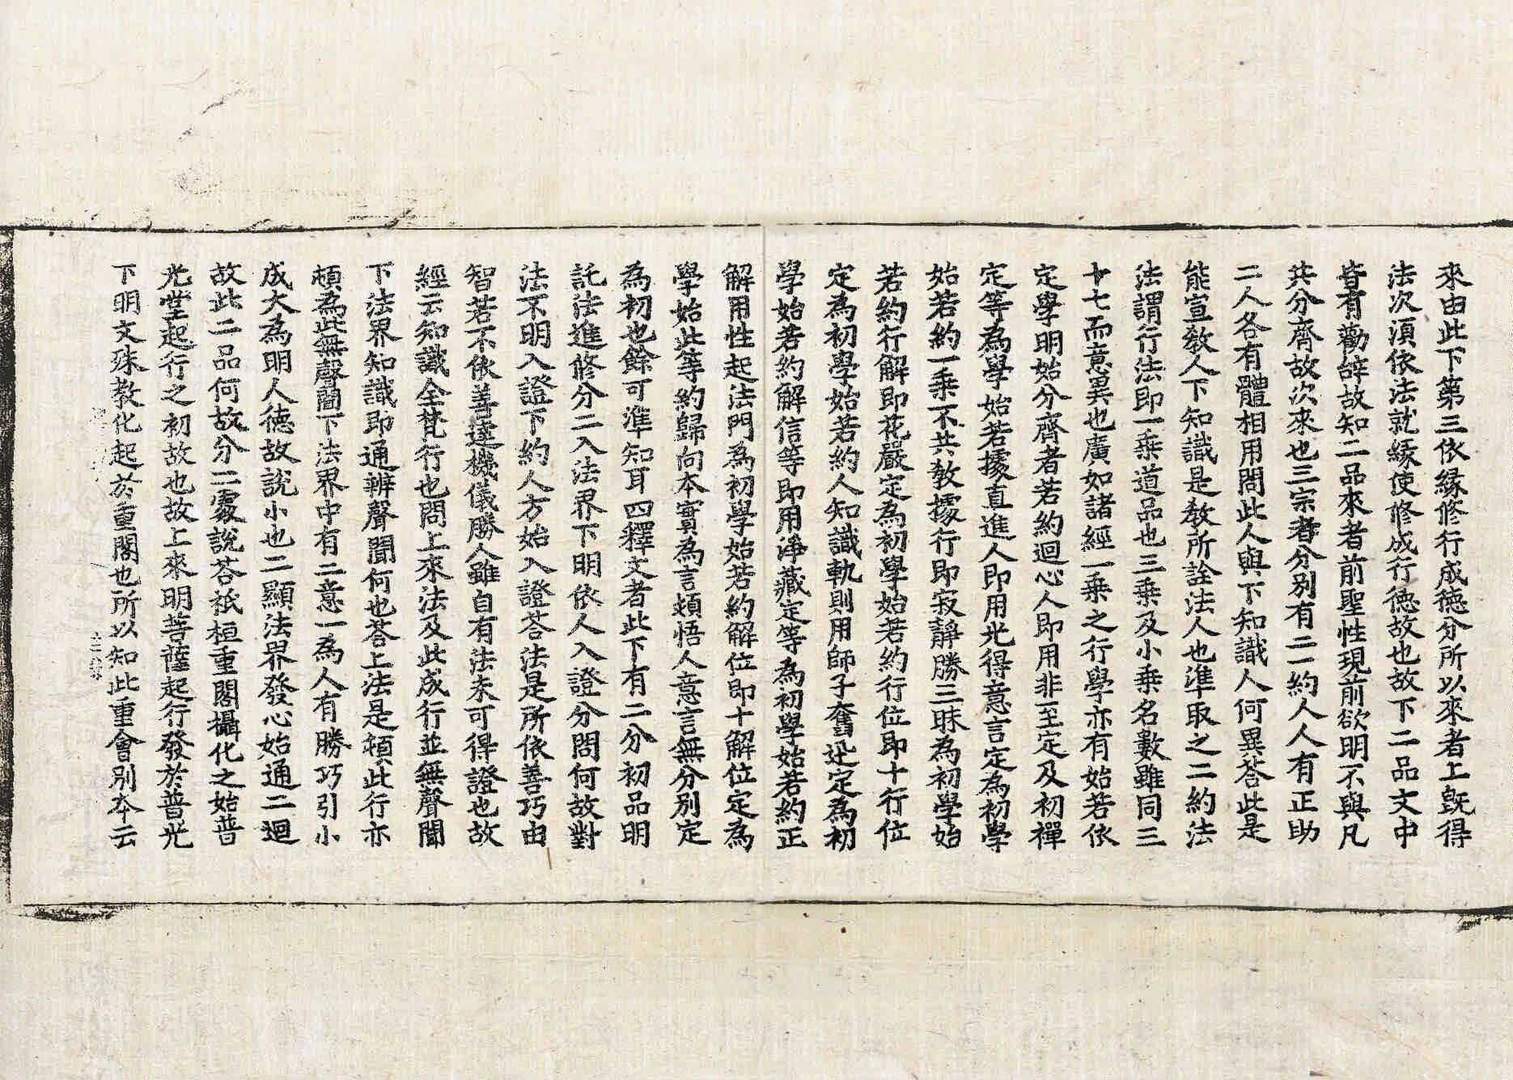 來由此下第三依緣修行成德分所以來者上旣得
法次須依法就緣使修成行德故也故下二品文中
皆有勸辭故知二品來者前聖性現前欲明不與凡
共分齊故次來也三宗者分別有二一約人人有正助
二人各有體相用問此人與下知識人何異荅此是
能宣敎人下知識是敎所詮法人也準取之二約法
法謂行法即一乘道品也三乘及小乘名數雖同三
十七而意異也廣如諸經一乘之行學亦有始若依
定學明始分齊者若約迴心人即用非至定及初禪
定等為學始若據直進人即用光得意言定為初學
始若約一乘不共敎據行即寂靜勝三昧為初學始
若約行解即花嚴定為初學始若約行位即十行位
定為初學始若約人知識軌則用師子奮迅定為初
學始若約解信等即用淨藏定等為初學始若約正
解用性起法門為初學始若約解位即十解位定為
學始此等約歸向本實為言頓悟人意言無分別定
為初也餘可準知耳四釋文者此下有二分初品明
託法進修分二入法界下明依人入證分問何故對
法不明入證下約人方始入證荅法是所依善巧由
智若不依善達機儀勝人雖自有法未可得證也故
經云知識全梵行也問上來法及此成行並無聲聞
下法界知識即通辨聲聞何也荅上法是頓此行亦
頓為此無聲聞下法界中有二意一為人有勝巧引小
成大為明人德故說小也二顯法界發心始通二迴
故此二品何故分二處說荅祇桓重閣攝化之始普
光堂起行之初故也故上來明菩薩起行發於普光
下明文殊敎化起於重閣也所以知此重會別夲云